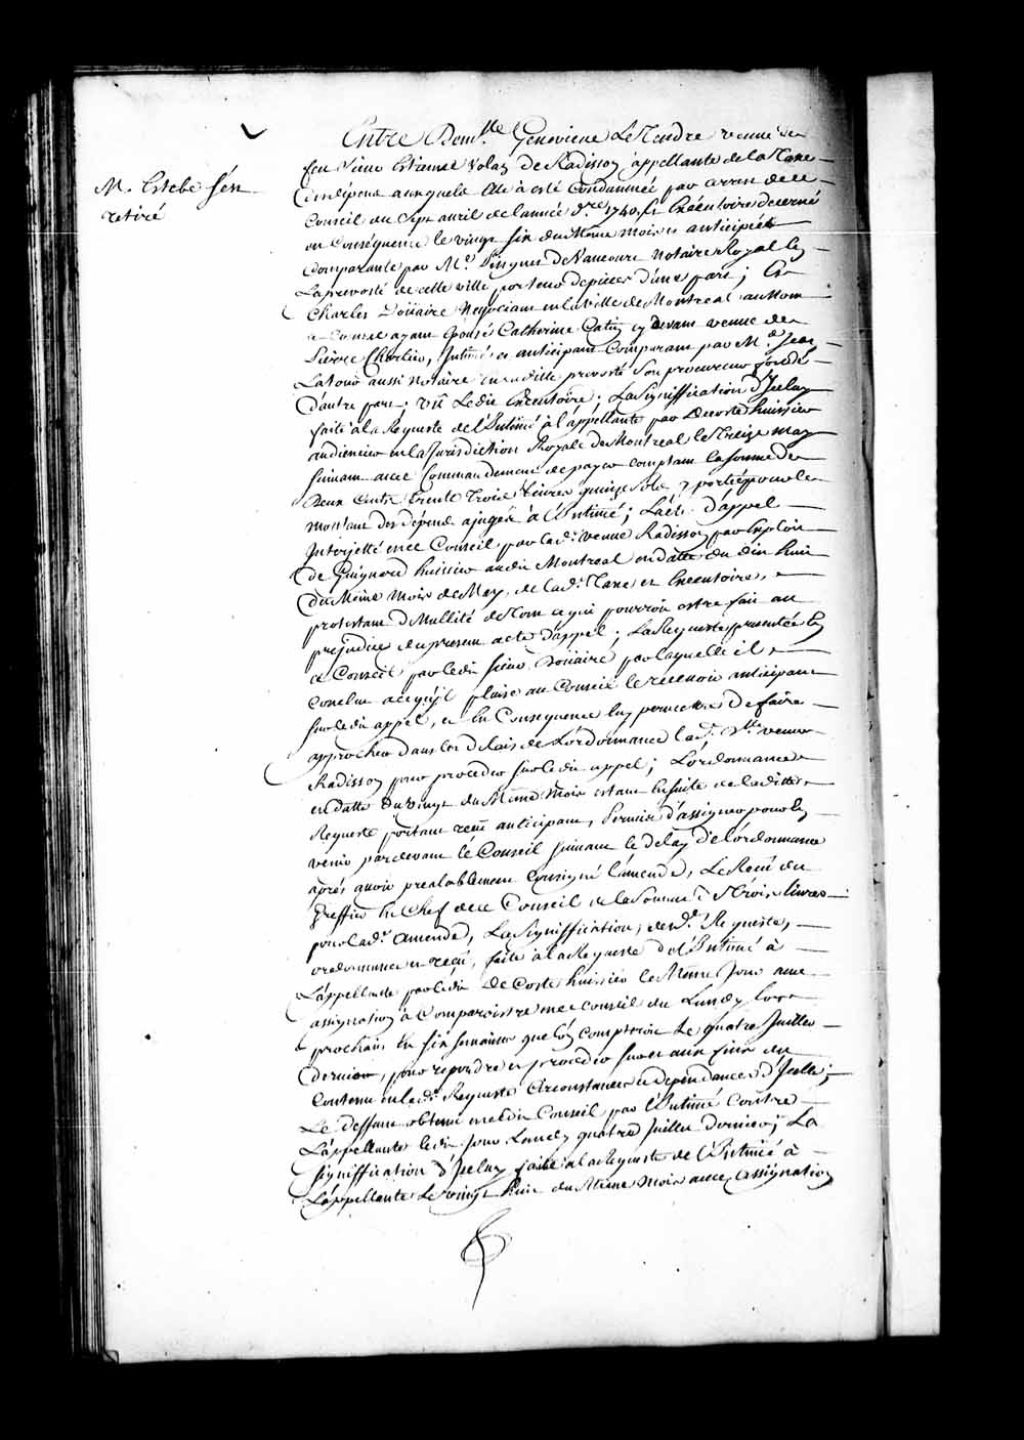 Entre Dem.lle Genevieve Le Tendre veuve de
feu Sieur Estienne Volan de Radisson appellante de la Taxe
M. Estebe s'en
retiré
des dépens auxquels Elle a esté Condamnée par arrest de ce
Conseil du Sept avril de l'année d.re 1740. Et Exécutoire decerné
en Conséquence le vingt six du Même mois et anticipée
Comparante par M.e Pinguet de Vaucour Notaire Royal En
La prevosté de cette ville porteur de pieces d'une part; Et
Charles Doüaire Negociant en la Ville de Montreal au Nom
et Comme ayant Epousé Catherine Catin cy devant veuve de
Pierre Charlier, Intimé et anticipant Comparant par M.e Jean
Latour aussi Notaire en ladite prevosté Son procureur fondé
d'autre part; Vû Ledit Exécutoire; La Signiffication d'Icelay
faite à la Requeste de l'Intimé à l'appellante par Decoste huissier
audiencier en la Jurisdiction Royale de Montreal le Treize may
suivant avec Commandement de payer comptant la somme de
Deux Cents trente trois Livres quinze sols y portée pour le
montant des dépens ajugés à l'Intimé; L'acte d'appel
Interjetté en ce Conseil par lad.e veuve Radisson par Exploit
de Guignard huissier audit Montreal en datte du dix huit
du Même mois de May, de lad.e Taxe et Executoire,
protestant de Nullité de Tout ce qui pourroit estre fait au
prejudice du present acte d'appel; La Requeste presentée En
ce Conseil par ledit sieur Doüaire par laquelle il
Conclut a ce qu'il plaise au Conseil le recevoir anticipant
sur ledit appel, et En Consequence luy permettre De faire
approcher dans les délais de L'ordonnance lad.e D.lle veuve
Radisson pour proceder sur ledit appel; L'ordonnance
en datte du vingt du Même mois estant Ensuite de ladite
Requeste portant receu anticipant, Permis d'assigner pour En
venir pardevant le Conseil suivant le delay de l'ordonnance
après avoir prealablement Consigné l'amende, Le Receu du
Greffier En Chef de ce Conseil de la Somme de Trois livres
pour lad.e amende, La Signiffication, desd.e Requeste,
ordonnance et receu, faite à la Requeste de l'Intimé à
L'appellante par ledit De Coste huissier le Même Jour avec
assignation à Comparoistre en ce conseil du Lundy lors
prochain En six semaines que l'on comptoit Le quatre Juillet
dernier, pour repondre et proceder sur et aux fins du
Contenu en lad.e Requeste Circonstances et dependances d'Icelle;
Le deffaut obtenu en ledit Conseil par l'Intimé Contre
L'appellante ledit Jour Lundy quatre Juillet dernier; La
signiffication d'Icelay faite a la Requeste de l'Intimé à
L'appellante Le vingt huit du Même mois avec assignation